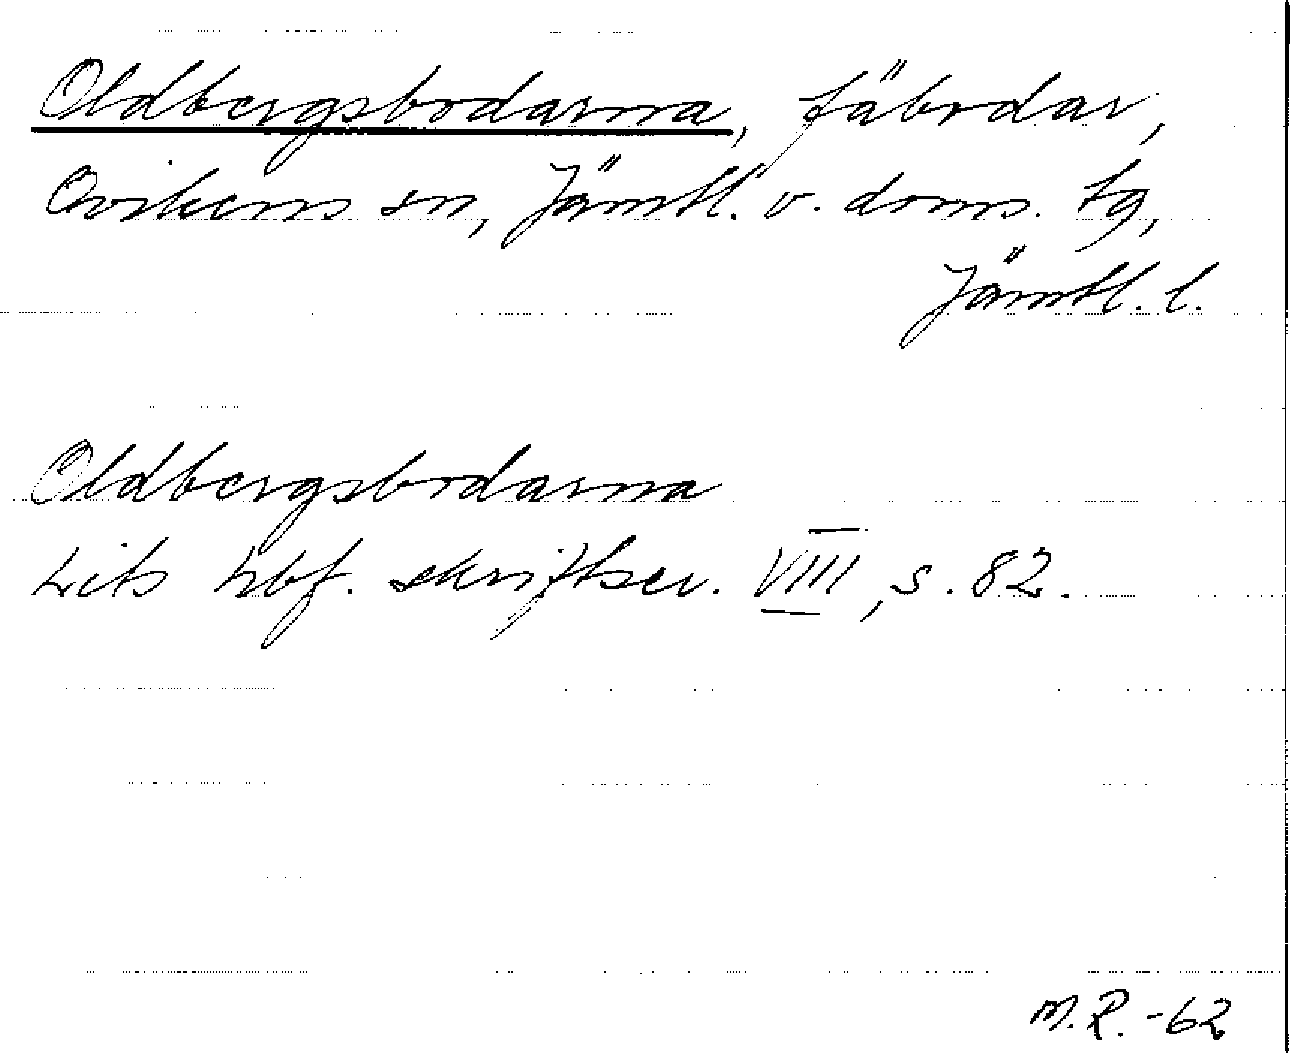 Oldbergsbodarna, fäbodar,
Ovikens sn, Jämtl. v. doms. tg,
Jämtl. l.
Oldbergsbodarna
Lits hbf. skriftser. VIII, s. 82.
M.R. -62